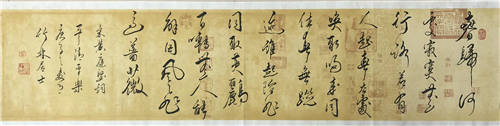 春歸何
處寂寞無
行路若有
人知春去處
喚取歸來同
住春無蹤
迹誰知除非
問取黃鸝
百囀無人能
解因風飛
過薔薇
宋黃庭堅詞
清平樂
居士